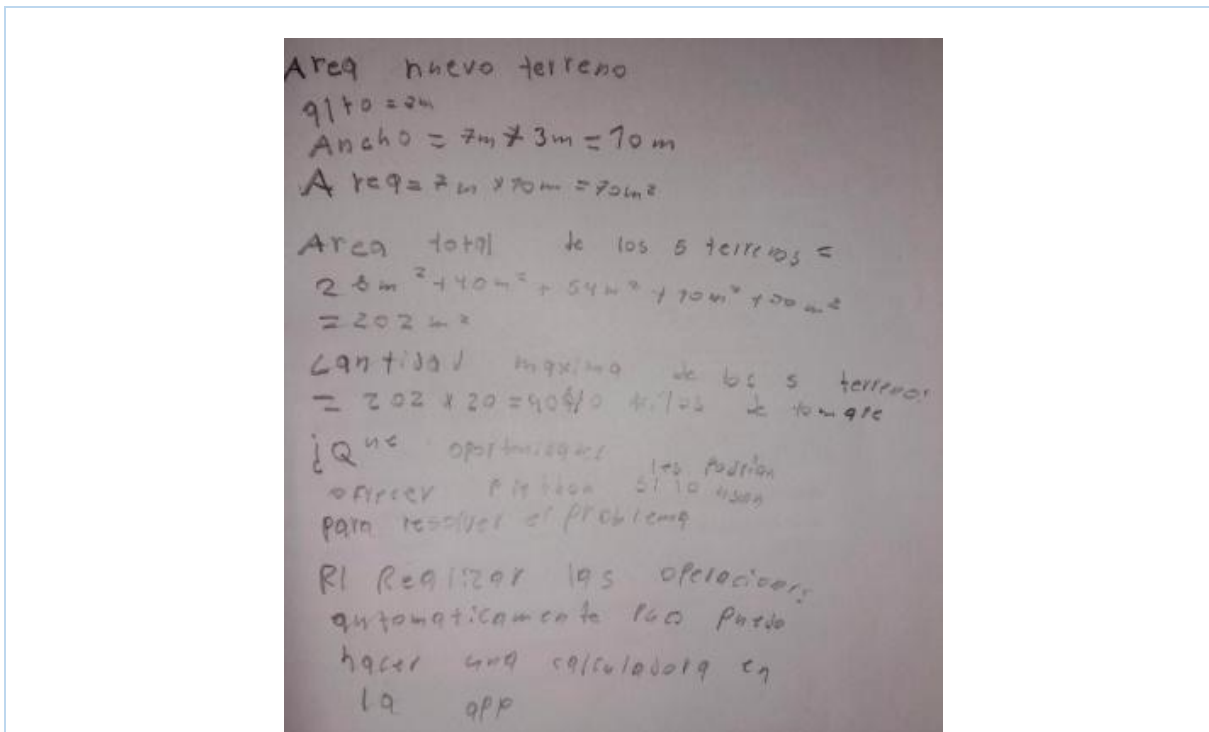 Area nuevo terreno
alto = 7m
Ancho = 7m + 3m = 10 m
Area = 7m x 10m = 70m²
Area total de los 5 terrenos =
28m² + 40m² + 54m² + 10m² + 70m²
= 202 m²
Cantidad maxima de los 5 terrenos
= 202 x 20 = 4040 kilos de tomate
¿Que les podrian
ofrecer si lo usan
para resolver el problema
R/ Realizar las operaciones
automaticamente puedo
hacer una calculadora en
la app